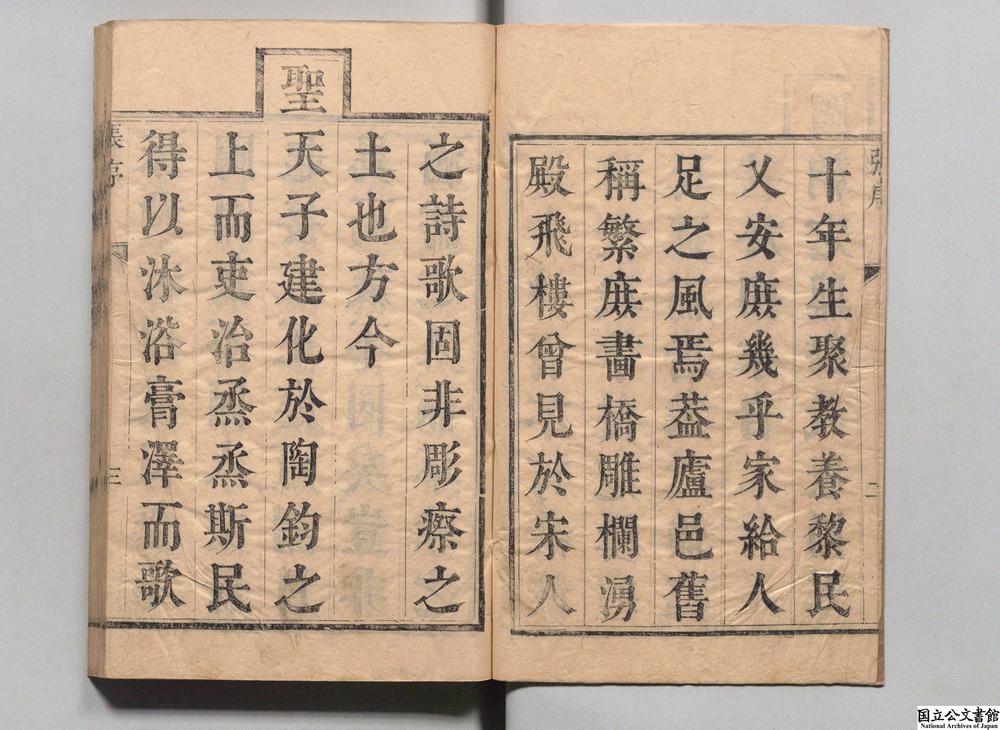 張序
二
十年生聚教養黎民
又安庶幾乎家給人
足之風焉葢廬邑舊
稱繁庶畵橋雕欄湧
殿飛樓曾見於宋人
之詩歌固非彫瘵之
土也方今
聖
天子建化於陶鈞之
上而吏治烝烝斯民
得以沐浴膏澤而歌
張序
三
国立公文書館
National Archives of Japan